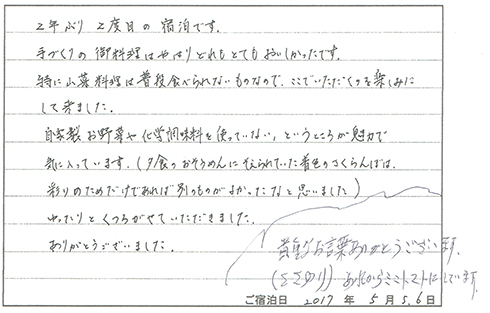 2年ぶり2度目の宿泊です。
手づくりの御料理はやはりどれもとてもおいしかったです。
特に山菜料理は普段食べられないものなので、ここでいただくのを楽しみに
して来ました。
自家製お野菜や化学調味料を使っていない、というところが魅力で
気に入っています。(夕食のおそうめんに そえられていた着色のさくらんぼは、
彩りのためだけであれば別のものがよかったなと思いました)
ゆったりとくつろがせていただきました。
ありがとうございました。
貴重なお言葉ありがとうございます。
あれからミニトマトにしています。
ご宿泊日 2017 年 5 月 5,6 日